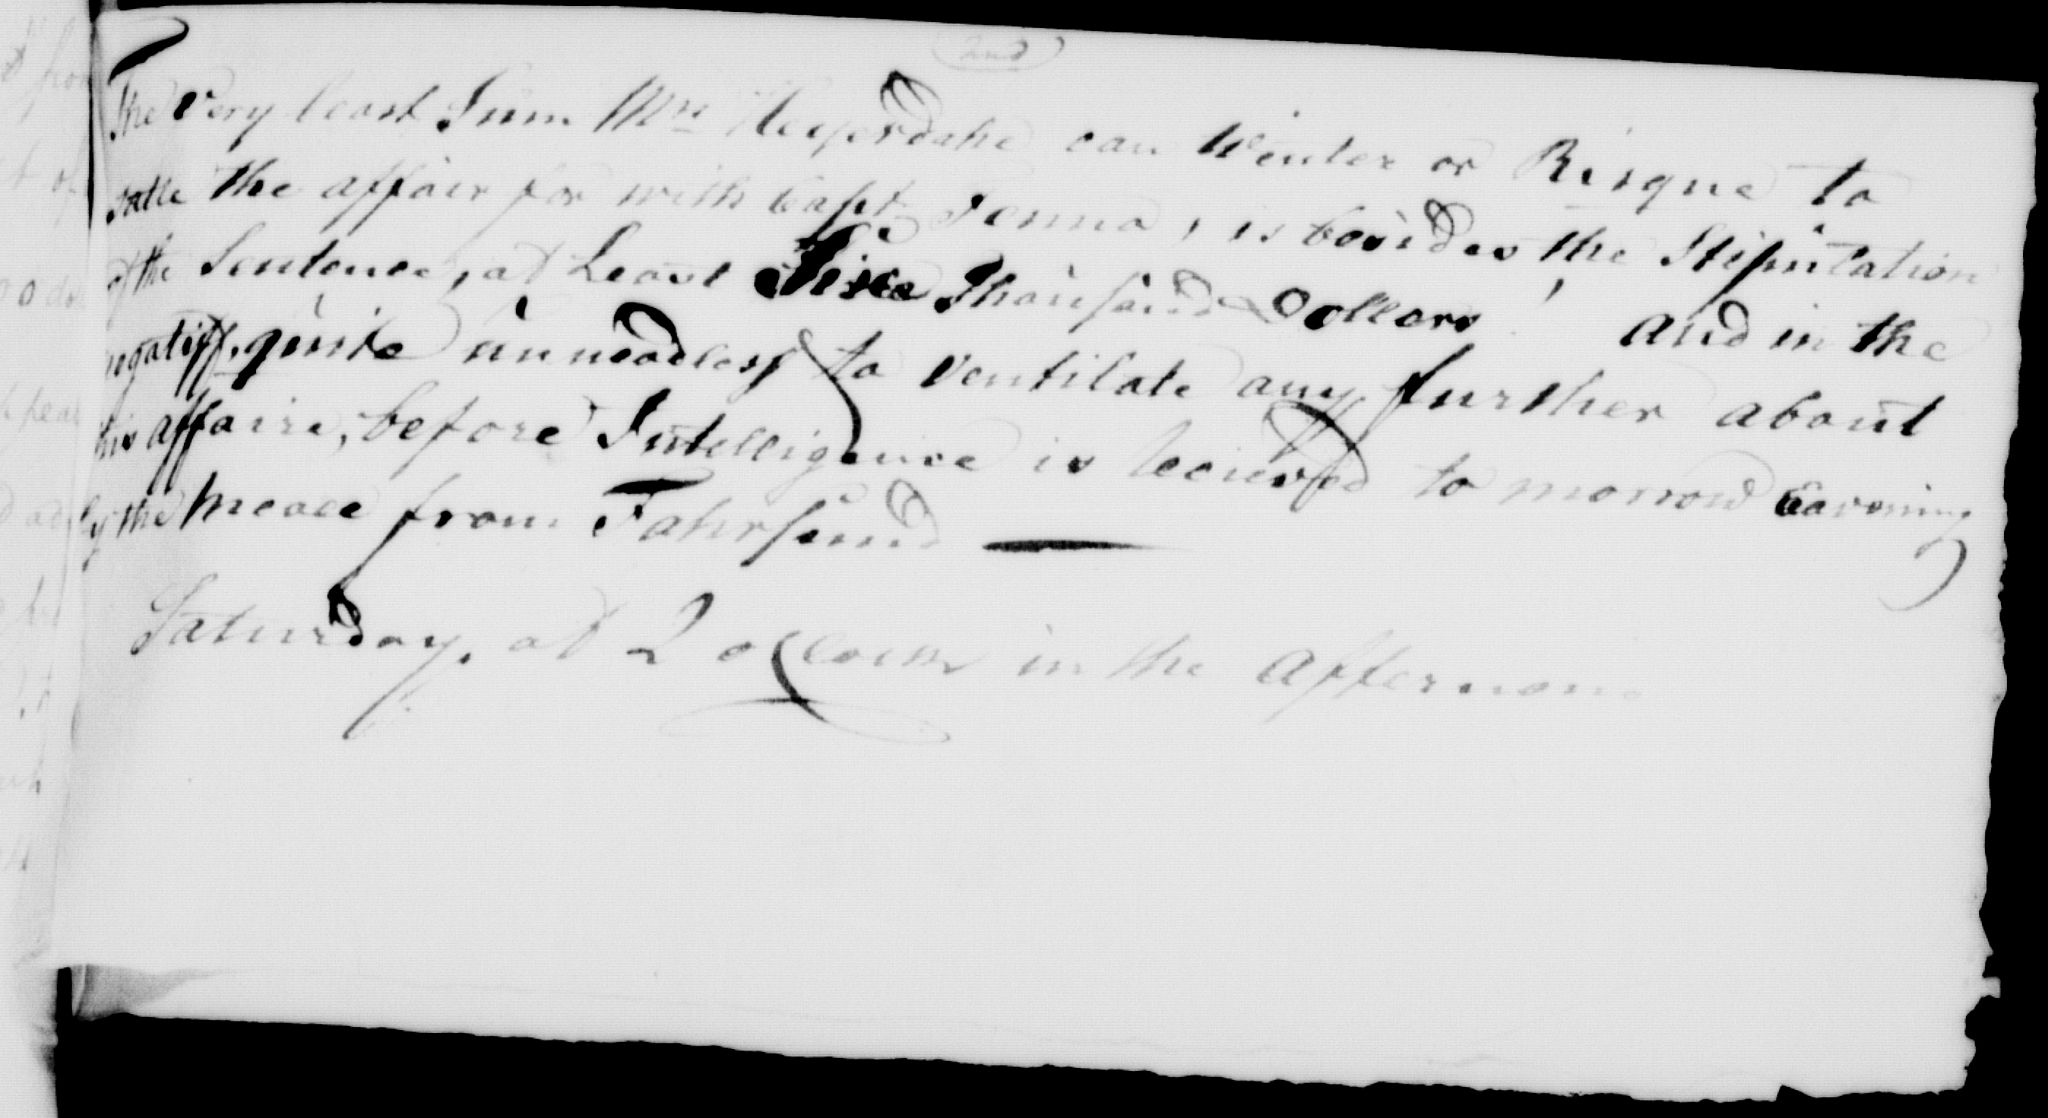 2nd
The Very least Sum Mrs can Winter or Risque to
satle the affair for with Capt. Jenna, is besides the Stipulation
of the Sentence, at Least Thousand Dollars! and in the
negatiff, quite unneadless to ventilate any further about
this affaire, before Intelligence is to morrow Eavening
by the from Fahrsund —
Saturday, at 2 oClock in the afternoon